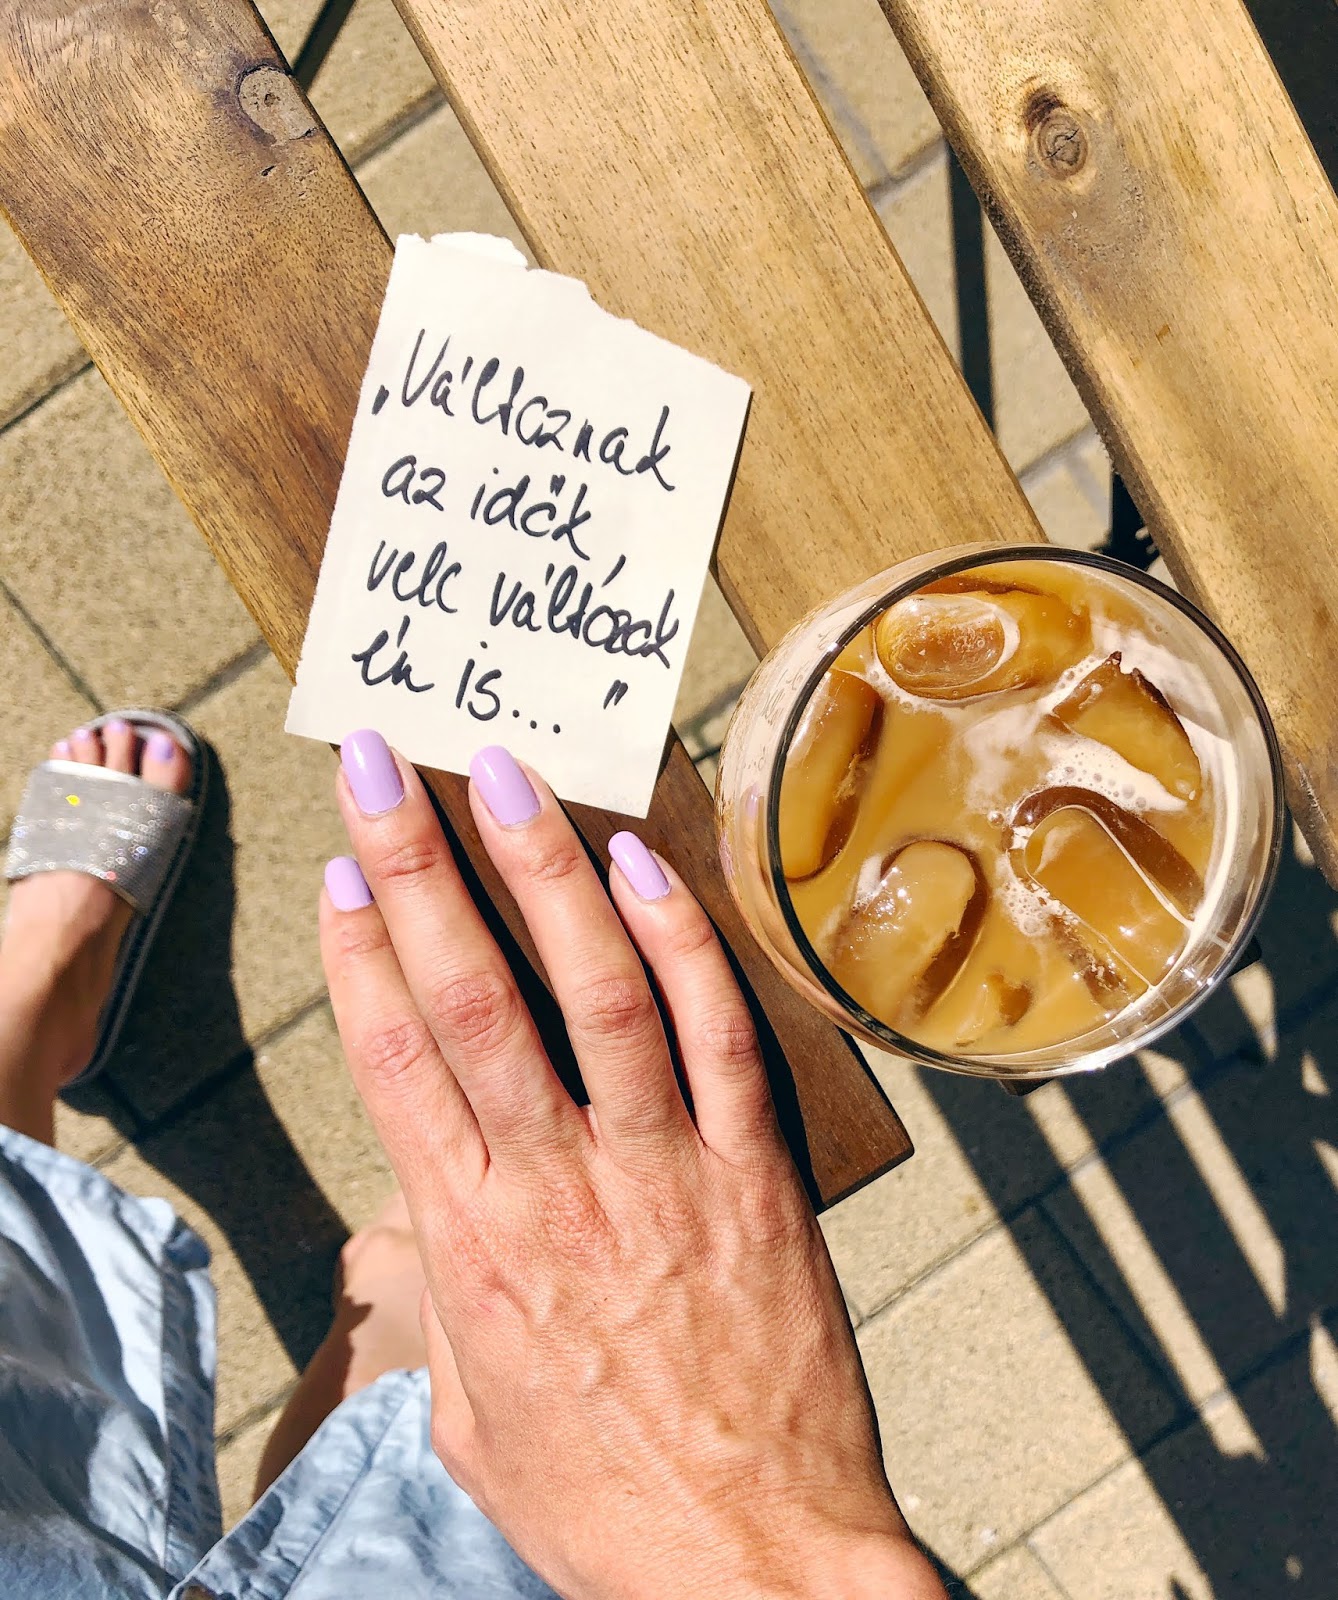 „Változnak
az idők,
vele változok
én is... "